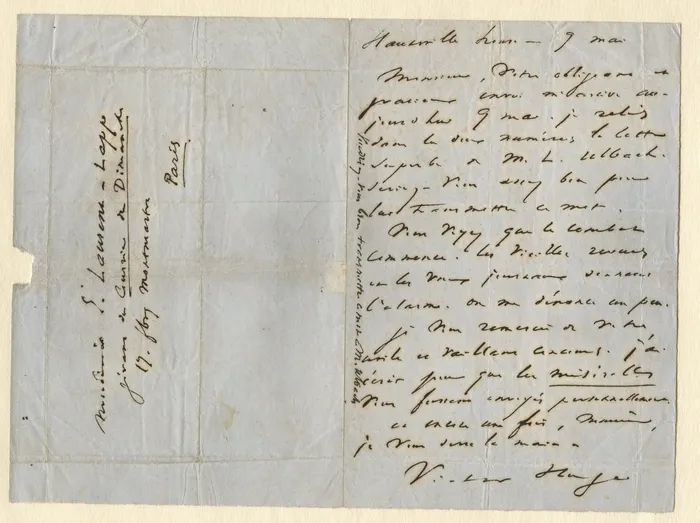 Hauteville house – 9 mai
Monsieur, Votre obligeant et
gracieux envoi m'arrive au-
jourd'hui 9 mai. je relis
dans les deux numéros la lettre
superbe de M. L. Ulbach.
Serez-vous assez bon pour
lui transmettre ce mot.
Vous voyez que le combat
commence. les vieilles revues
et les vieux journaux sonnent
l'alarme. on me dénonce un peu.
je vous remercie de votre
utile et vaillant concours. j'ai
écrit pour que les misérables
vous fussent envoyés personnellement
et encore une fois, Monsieur,
je vous serre la main.
Victor Hugo
transmettre ce mot à M. Ulbach
Monsieur E.
gérant du Courrier du Dimanche
17. fbg Montmartre
Paris